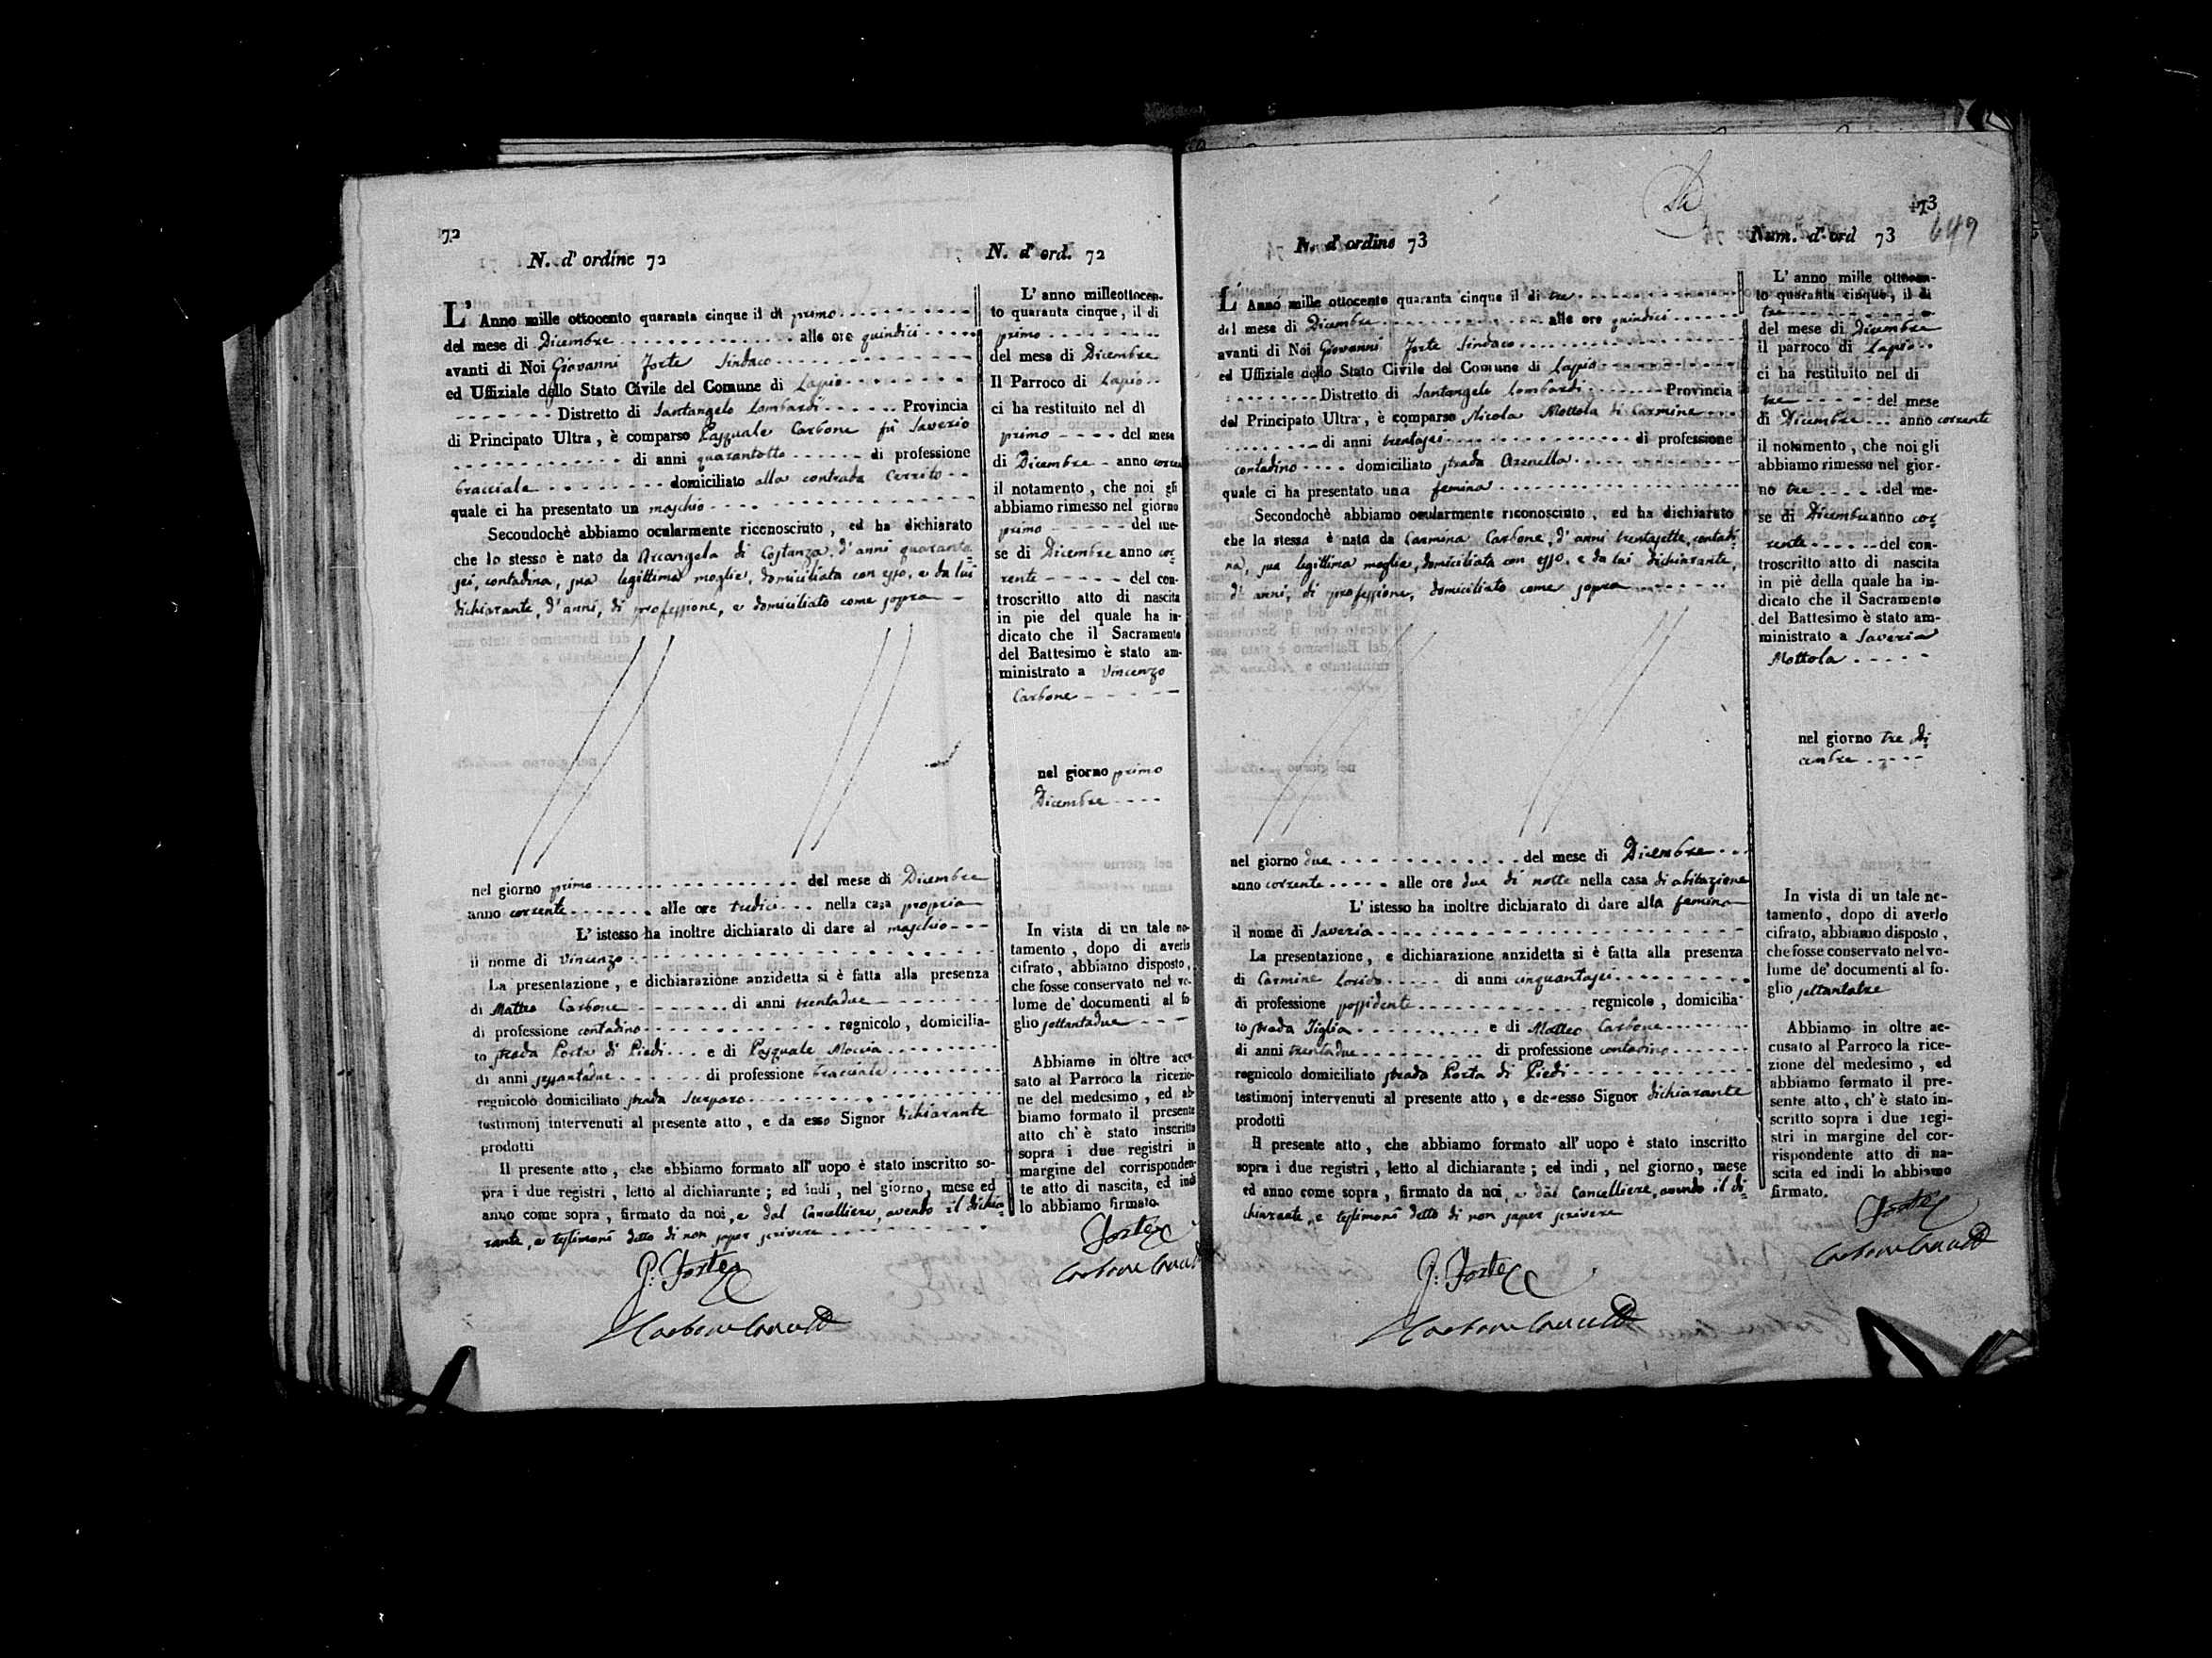 72
N. d' ordine 72
L' Anno mille ottocento quaranta cinque il di primo
del mese di Dicembre alle ore quindici
avanti di Noi Giovanni Forte Sindaco
ed Uffiziale dello Stato Civile del Comune di Lapio
Distretto di Santangelo Lombardi Provincia
di Principato Ultra, è comparso Pasquale Carbone fu Saverio
di anni quarantotto di professione
bracciale domiciliato alla contrada Cerrito
quale ci ha presentato un maschio
Secondochè abbiamo ocularmente riconosciuto, ed ha dichiarato
che lo stesso è nato da Arcangela di Costanza, d'anni quaranta
sei, contadina, sua legittima moglie, domiciliata con esso, e da lui
dichiarante, d'anni, di professione, e domiciliato come sopra
nel giorno primo del mese di Dicembre
anno corrente alle ore tredici nella casa propria
L' istesso ha inoltre dichiarato di dare al maschio
il nome di Vincenzo
La presentazione, e dichiarazione anzidetta si è fatta alla presenza
di Matteo Carbone di anni trentadue
di professione contadino regnicolo, domicilia-
to strada Porta di Piedi e di Pasquale Moccia
di anni sessantadue di professione bracciale
regnicolo domiciliato strada
testimonj intervenuti al presente atto, e da esso Signor dichiarante
prodotti
Il presente atto, che abbiamo formato all' uopo è stato inscritto so-
pra i due registri, letto al dichiarante; ed indi, nel giorno, mese ed
anno come sopra, firmato da noi, e dal Cancelliere, avendo il dichia-
rante, e testimoni detto di non saper scrivere
G: Forte
N. d' ord. 72
L' anno milleottocen-
to quaranta cinque, il di
primo
del mese di Dicembre
Il Parroco di Lapio
ci ha restituito nel dì
primo del mese
di Dicembre anno corren
il notamento, che noi gli
abbiamo rimesso nel giorno
primo del me-
se di Dicembre anno cor-
rente del con-
troscritto atto di nascita
in pie del quale ha in-
dicato che il Sacramento
del Battesimo è stato am-
ministrato a Vincenzo
Carbone
nel giorno primo
Dicembre
In vista di un tale no-
tamento, dopo di averlo
cifrato, abbiamo disposto,
che fosse conservato nel vo-
lume de' documenti al fo-
glio settantadue
Abbiamo in oltre accu-
sato al Parroco la ricezio-
ne del medesimo, ed ab-
biamo formato il presente
atto ch' è stato inscritto
sopra i due registri in
margine del corrisponden-
te atto di nascita, ed indi
lo abbiamo firmato.
Forte
73
649
N. d' ordine 73
L' Anno mille ottocento quaranta cinque il di tre
del mese di Dicembre alle ore quindici
avanti di Noi Giovanni Forte Sindaco
ed Uffiziale dello Stato Civile del Comune di Lapio
Distretto di Santangelo Lombardi Provincia
del Principato Ultra, è comparso Nicola Mottola di Carmine
di anni trentasei di professione
contadino domiciliato strada Arenella
quale ci ha presentato una femina
Secondochè abbiamo ocularmente riconosciuto, ed ha dichiarato
che la stessa è nata da Carmina Carbone, d'anni trentasette, contadi-
na, sua legittima moglie, domiciliata con esso, e da lui dichiarante,
d' anni, di professione, domiciliato come sopra
nel giorno due del mese di Dicembre
anno corrente alle ore due di notte nella casa di abitazione
L' istesso ha inoltre dichiarato di dare alla femina
il nome di Saveria
La presentazione, e dichiarazione anzidetta si è fatta alla presenza
di Carmine di anni cinquantasei
di professione possidente regnicolo, domicilia-
to strada Tiglia e di Matteo Carbone
di anni trentadue di professione contadino
regnicolo domiciliato strada Porta di Piedi
testimonj intervenuti al presente atto, e da esso Signor dichiarante
prodotti
Il presente atto, che abbiamo formato all' uopo è stato inscritto
sopra i due registri, letto al dichiarante; ed indi, nel giorno, mese
ed anno come sopra, firmato da noi, e dal Cancelliere, avendo il di-
chiarante, e testimoni detto di non saper scrivere
G: Forte
Num. d' ord 73
L' anno mille ottocen-
to quaranta cinque, il di
tre
del mese di Dicembre
il parroco di Lapio
ci ha restituito nel di
tre del mese
di Dicembre anno corrente
il notamento, che noi gli
abbiamo rimesso nel gior-
no tre del me-
se di Dicembre anno cor-
rente del con-
troscritto atto di nascita
in piè della quale ha in-
dicato che il Sacramento
del Battesimo è stato am-
ministrato a Saveria
Mottola
nel giorno tre Di-
cembre
In vista di un tale no-
tamento, dopo di averlo
cifrato, abbiamo disposto,
che fosse conservato nel vo-
lume de' documenti al fo-
glio settantatre
Abbiamo in oltre ac-
cusato al Parroco la rice-
zione del medesimo, ed
abbiamo formato il pre-
sente atto, ch' è stato in-
scritto sopra i due regi-
stri in margine del cor-
rispondente atto di na-
scita ed indi lo abbiamo
firmato.
Forte